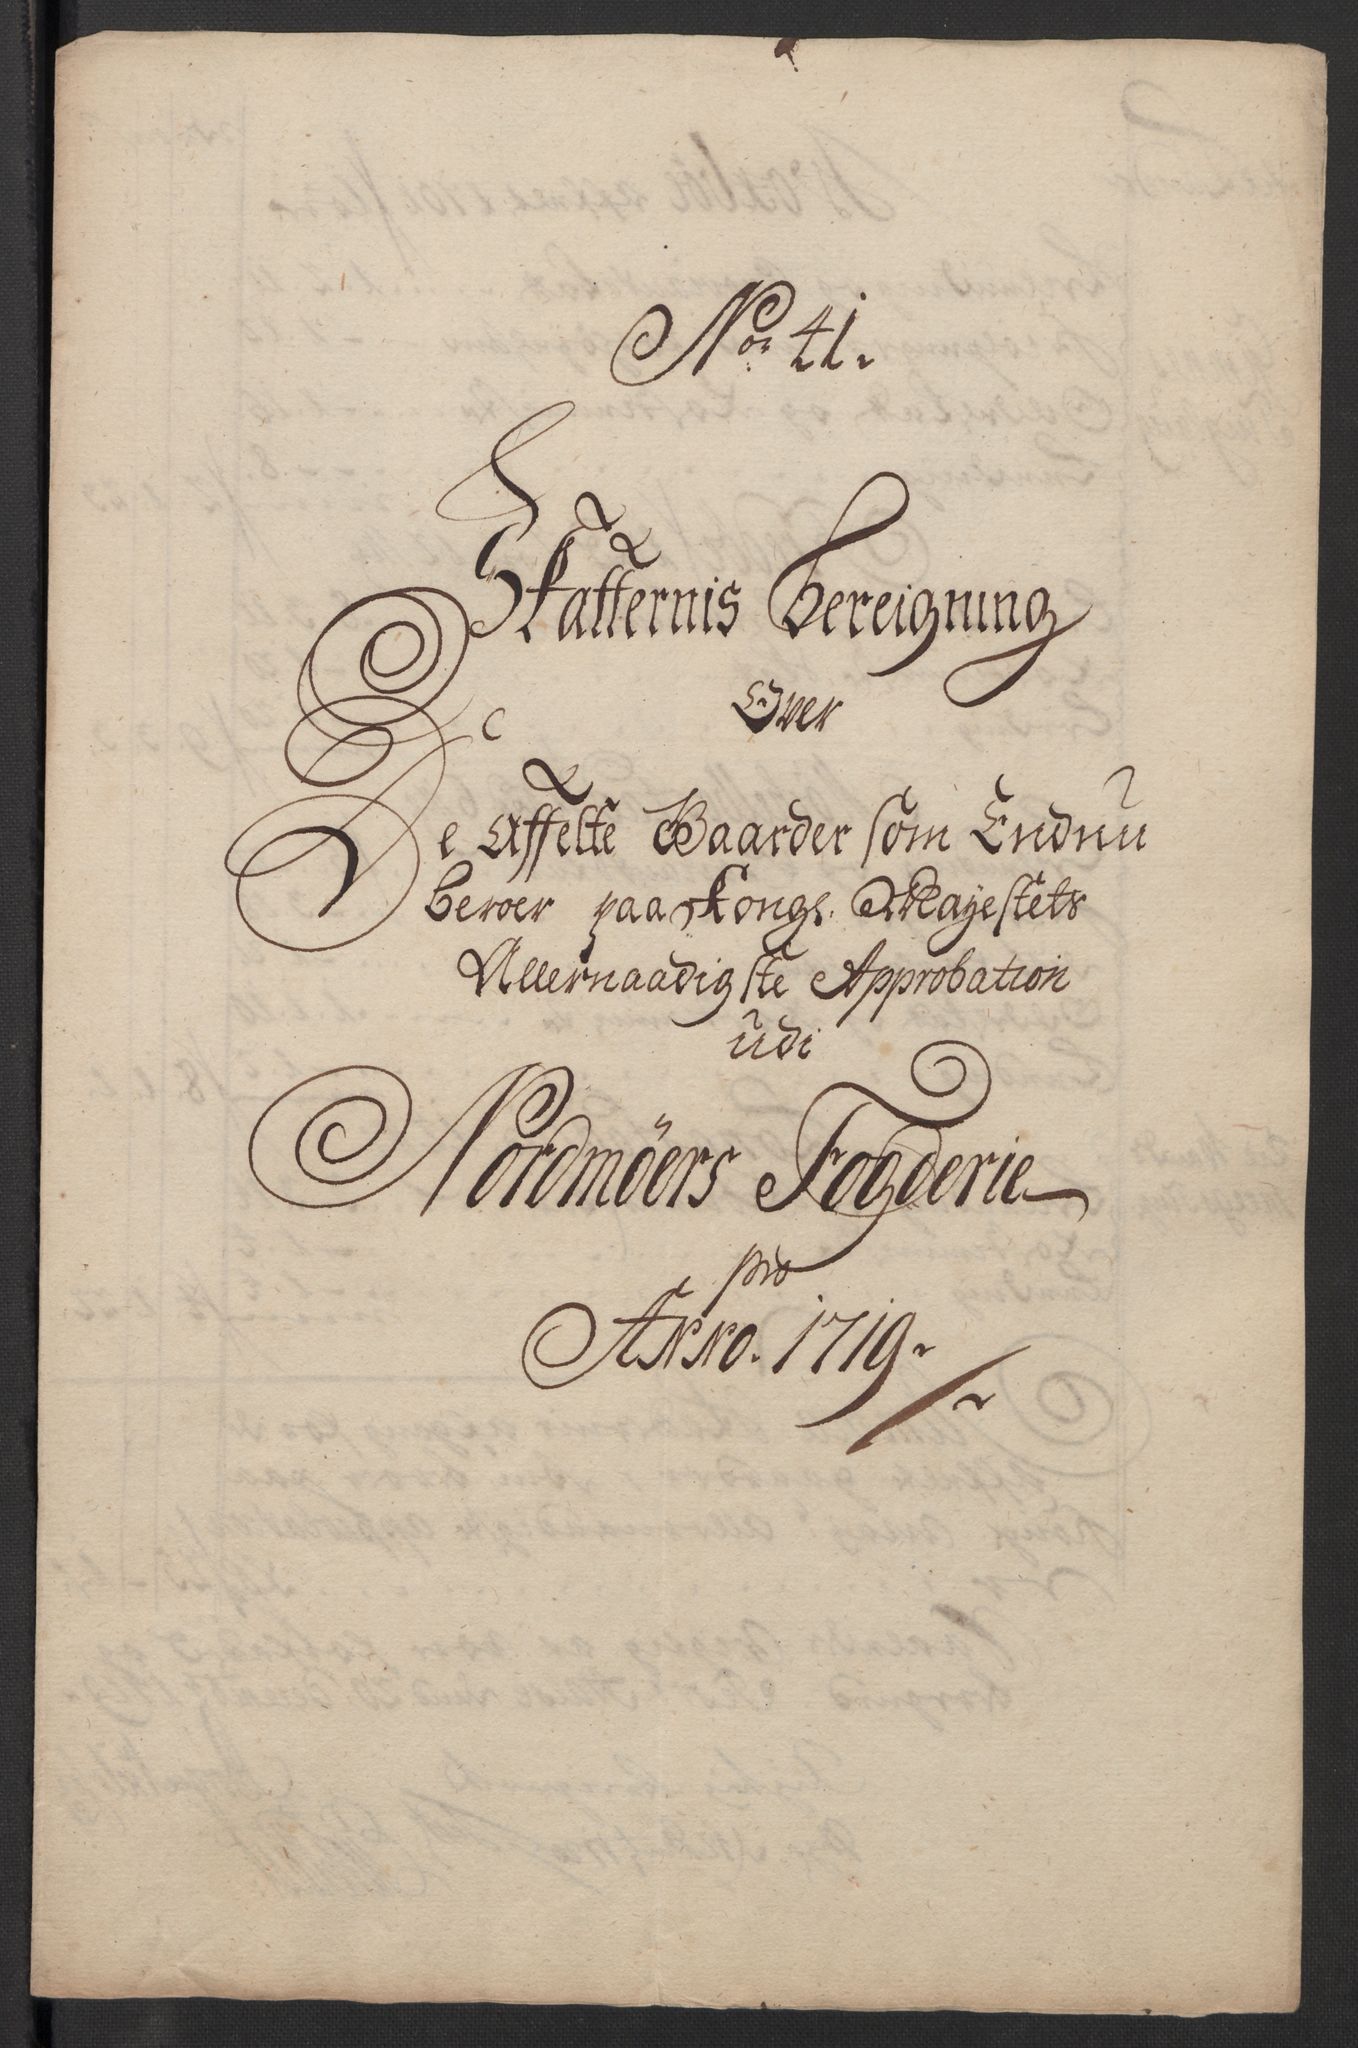 No. 41.
Skatternis Bereigning
Over
De Affelte Gaarder som Endnu
beroer paa Kongl. Mayestets
Allernaadigste Approbation
udi
Nordmöers Fogderie
pro
Anno. 1719.